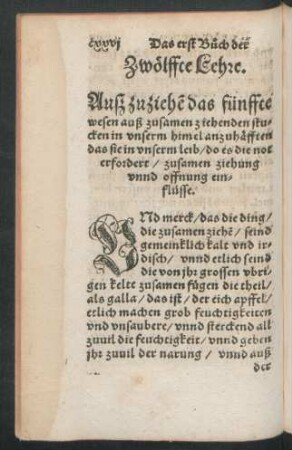 cxxvj Das erst Bůch der
Zwölffte Lehre.
Auß zuziehē das fünffte
wesen auß zusamen ziehenden stu-
cken in vnserm himel anzuhäfften
das sie in vnserm leib / do es die not
erfordert / zusamen ziehung
vnnd offnung ein-
flüsse.
VNd merck / das die ding /
die zusamen ziehē / seind
gemeinklich kalt vnd ir-
disch / vnnd etlich seind
die von jhr grossen vbri-
gen kelte zusamen fügen die theil /
als galla / das ist / der eich apffel /
etlich machen grob feuchtigkeiten
vnd vnsaubere / vnnd steckend all
zuuil die feuchtigkeit / vnnd geben
jhr zuuil der narung / vnnd auß
der